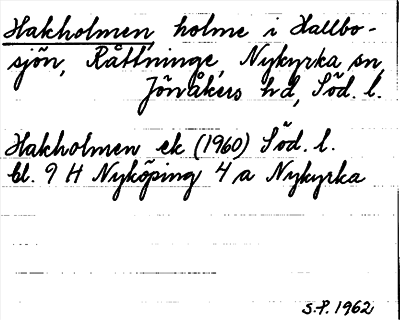 Hakholmen, holme i Hallbo-
sjön, Råttninge, Nykyrka sn,
Jönåkers hd, Söd. l.
Hakholmen ek (1960) Söd. l.
bl. 9 H Nyköping 4 a Nykyrka
S.P. 1962